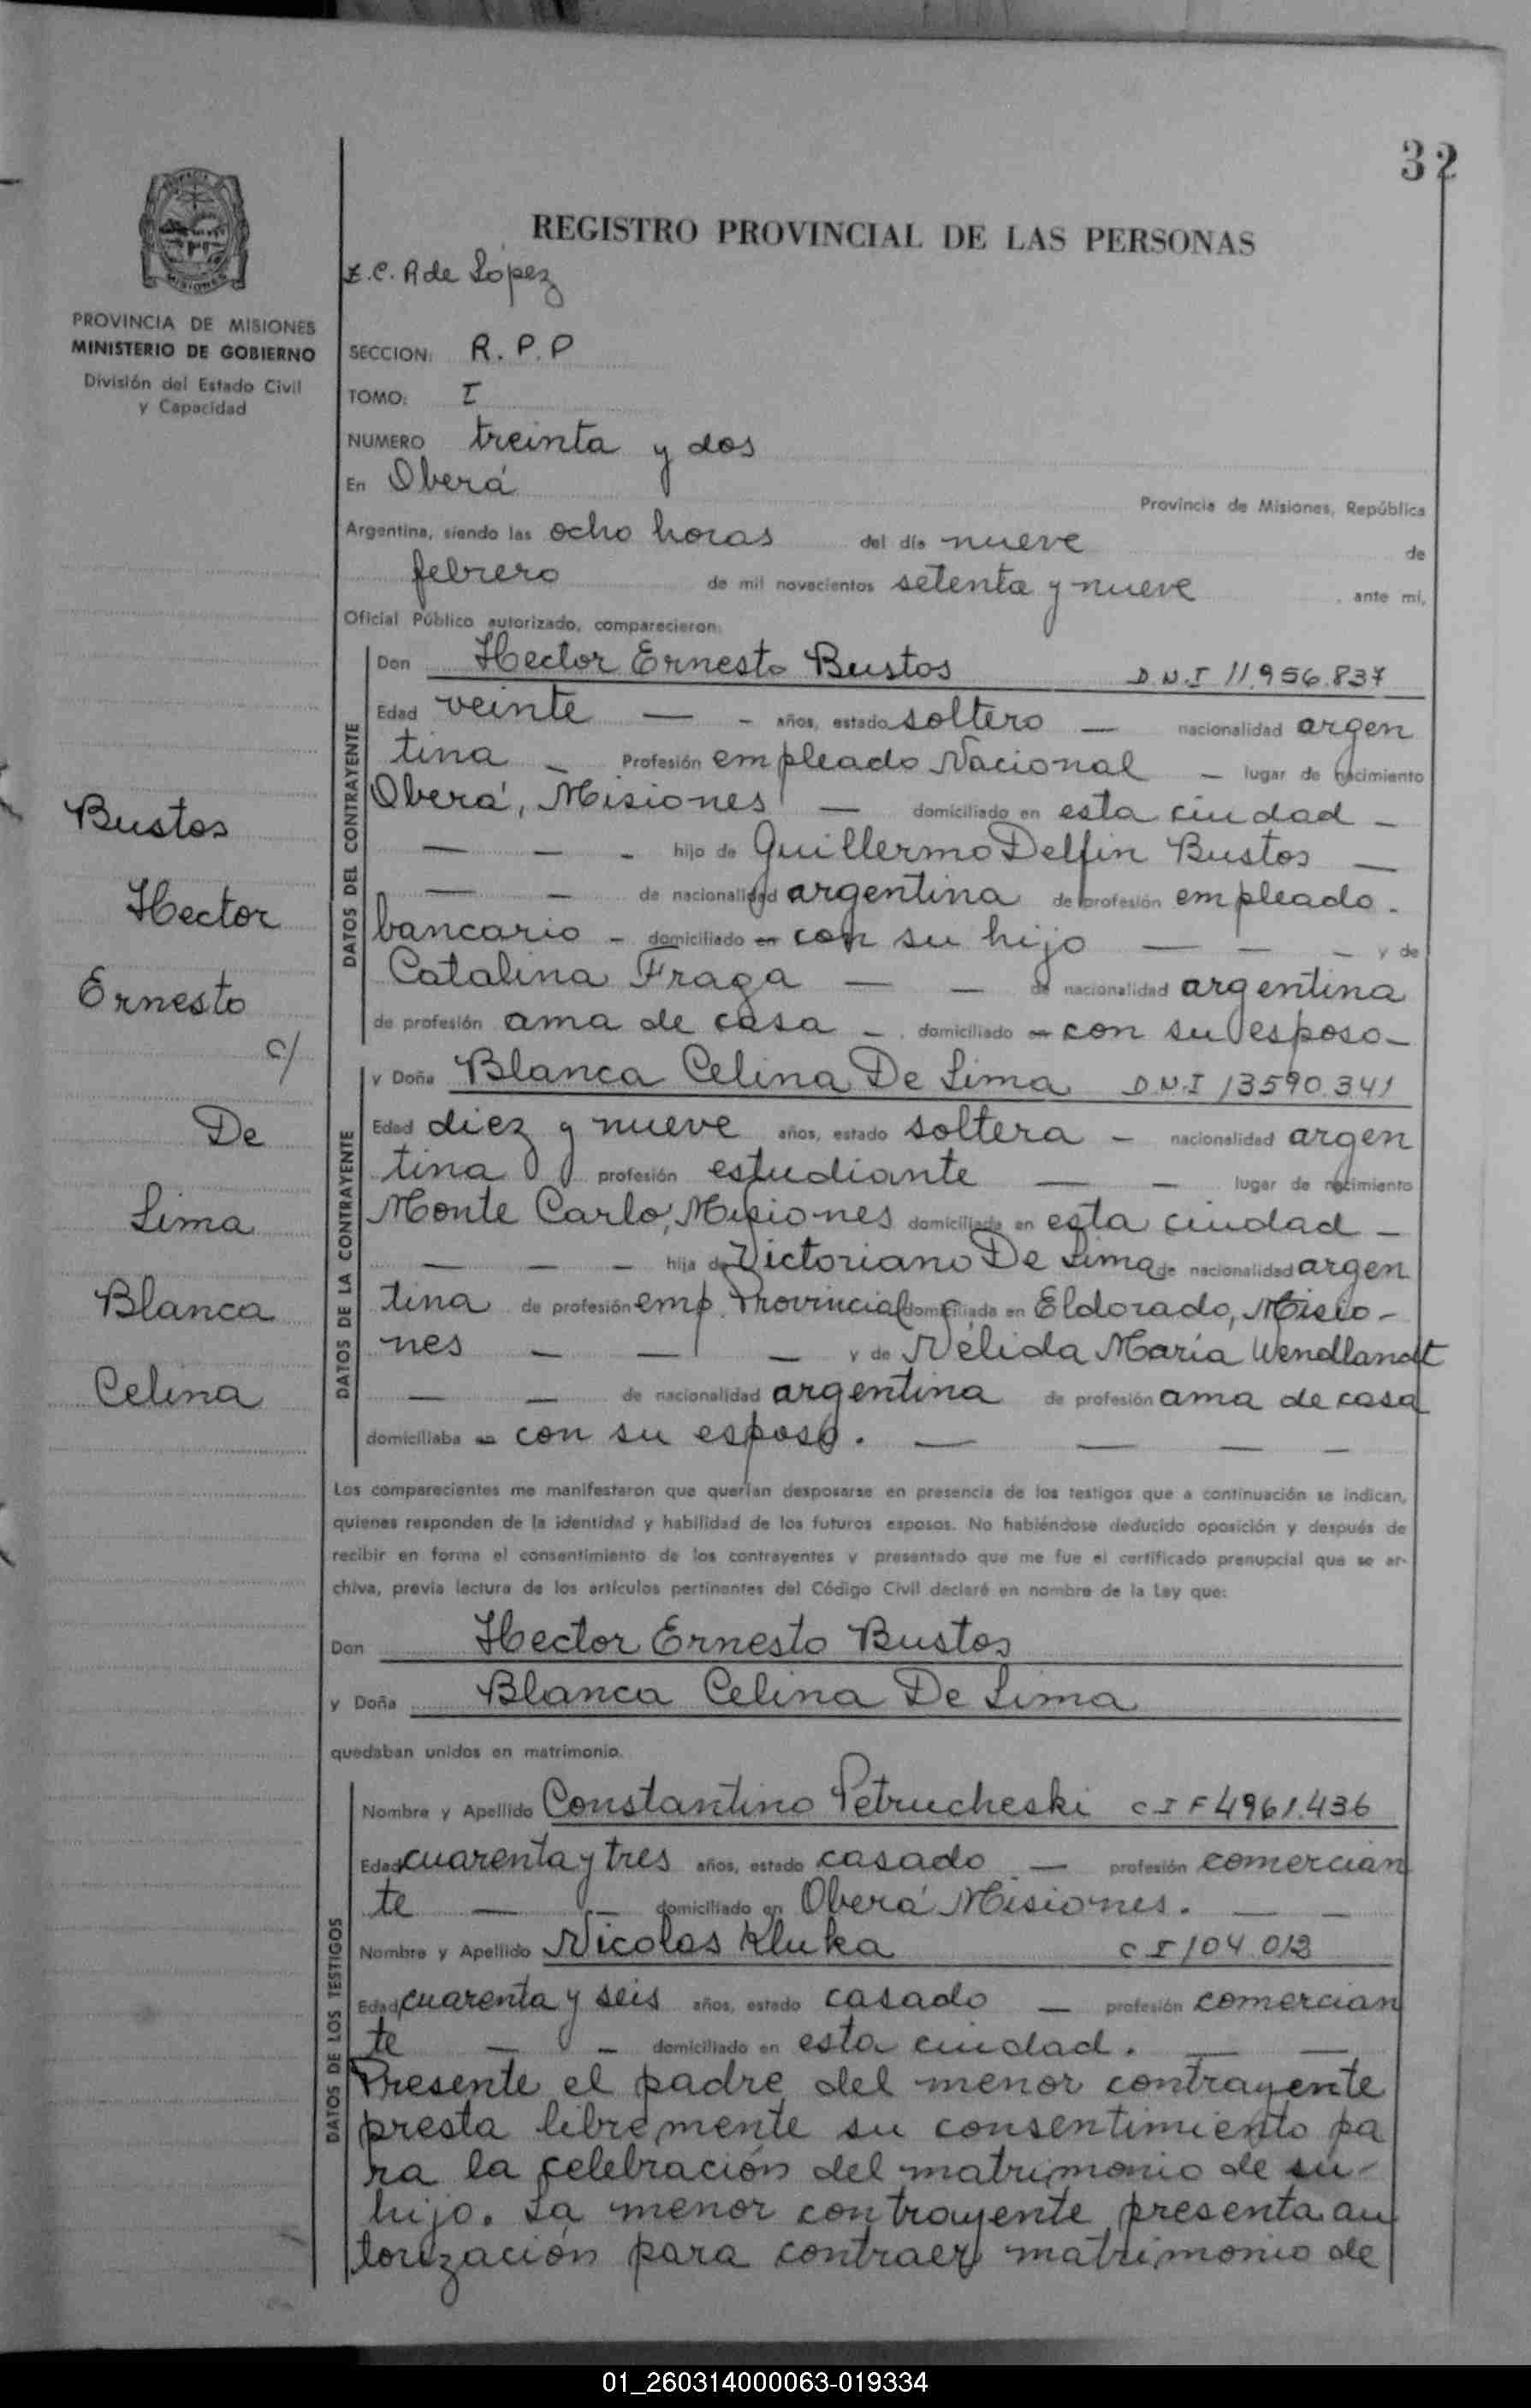 32
REGISTRO PROVINCIAL DE LAS PERSONAS
E.C. A de Lopez
PROVINCIA DE MISIONES
MINISTERIO DE GOBIERNO
División del Estado Civil
y Capacidad
SECCION: R.P.P
TOMO: I
NUMERO treinta y dos
En Oberá
Provincia de Misiones, República
Argentina, siendo las ocho horas del día nueve de
febrero de mil novecientos setenta y nueve, ante mí,
Oficial Público autorizado, comparecieron:
Don Hector Ernesto Bustos D.N.I 11.956.837
Edad veinte — - años, estado soltero — nacionalidad argen
tina - Profesión empleado Nacional - lugar de nacimiento
Oberá, Misiones — domiciliado en esta ciudad -
— - - hijo de Guillermo Delfin Bustos —
— — de nacionalidad argentina de profesión empleado -
bancario - domiciliado en con su hijo — — - y de
Catalina Fraga — — de nacionalidad argentina
de profesión ama de casa - domiciliado en con su esposo -
DATOS DEL CONTRAYENTE
y Doña Blanca Celina De Lima D.N.I 13590.341
Edad diez y nueve años, estado soltera - nacionalidad argen
tina profesión estudiante — — lugar de nacimiento
Monte Carlo, Misiones domiciliada en esta ciudad -
— — - hija de Victoriano De Lima de nacionalidad argen
tina de profesión emp. Provincial domiciliada en Eldorado, Misio -
nes — — — y de Nélida María Wendlandt
— — de nacionalidad argentina de profesión ama de casa
domiciliaba en con su esposo. — — — —
DATOS DE LA CONTRAYENTE
Bustos
Hector
Ernesto
c/
De
Lima
Blanca
Celina
Los comparecientes me manifestaron que querían desposarse en presencia de los testigos que a continuación se indican,
quienes responden de la identidad y habilidad de los futuros esposos. No habiéndose deducido oposición y después de
recibir en forma el consentimiento de los contrayentes y presentado que me fue el certificado prenupcial que se ar-
chiva, previa lectura de los artículos pertinentes del Código Civil declaré en nombre de la Ley que:
Don Hector Ernesto Bustos
y Doña Blanca Celina De Lima
quedaban unidos en matrimonio.
Nombre y Apellido Constantino Petrucheski C I F 4961.436
Edad cuarenta y tres años, estado casado — profesión comercian
te — — domiciliado en Oberá Misiones. — —
Nombre y Apellido Nicolas Kluka C I 104 012
Edad cuarenta y seis años, estado casado — profesión comercian
te — - domiciliado en esta ciudad. — —
DATOS DE LOS TESTIGOS
Presente el padre del menor contrayente
presta libremente su consentimiento pa
ra la celebración del matrimonio de su
hijo. La menor contrayente presenta au
torización para contraer matrimonio de
01_260314000063-019334